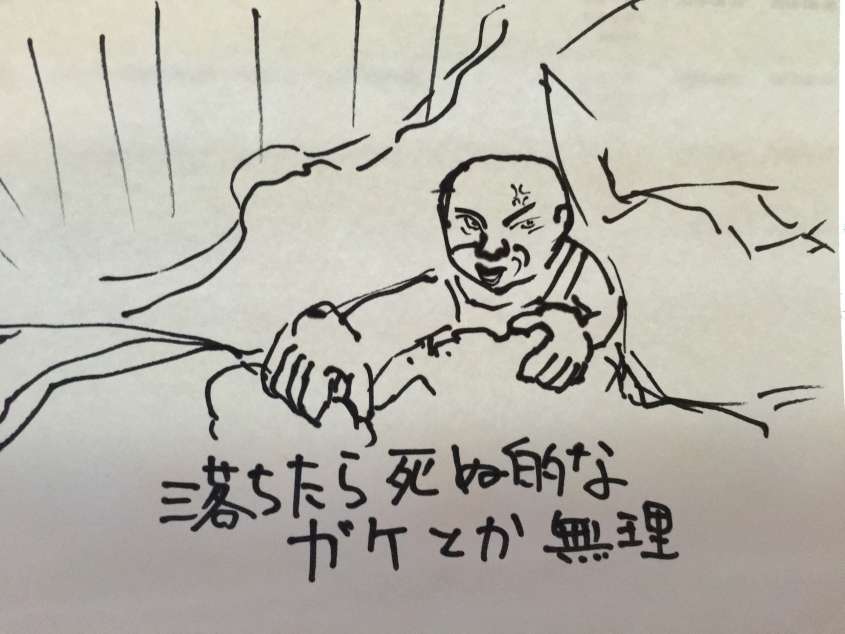 落ちたら死ぬ的な
ガケとか無理